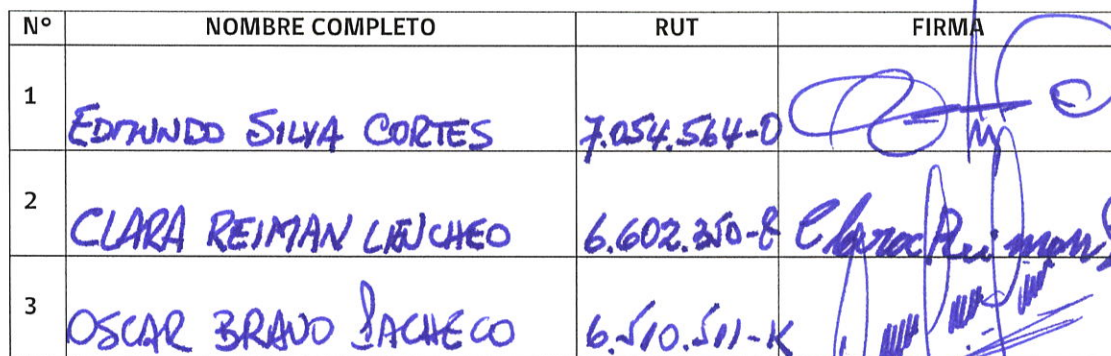 N° NOMBRE COMPLETO RUT FIRMA
1 EDMUNDO SILVA CORTES 7.054.564-0
2 CLARA REIMAN 6.602.350-8 Clara Reiman
3 OSCAR BRAVO PACHECO 6.510.511-K